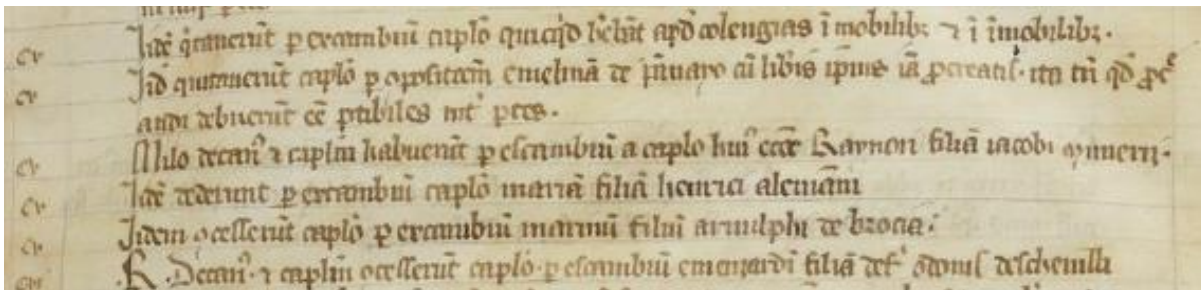 cv Idē q̄tauerūt p excambiū caplō quicq̄d hēbāt apd̄ colengias ī mobilibꝫ ⁊ ī īmobilibꝫ.
cv Iid̄ quitauerūt caplō p emelinā de cū lib̄is ip̄ius iā ꝓcreatis. ita tn̄ qd̄
debuerūt eē ptibiles int̓ ptes.
cv Milo decan̓ ⁊ caplm̄ habuerūt p escambiū a caplo hui̓ ecc̄e filiā iacobi
cv Idē dederunt p excambiū caplō mariā filiā henrici alemāni
cv Idem ꝯcesserūt caplō p excambiū martinū filiū arnulphi de brocia.
cv R. Decan̓ ⁊ caplm̄ ꝯcesserūt caplō p escambiū filiā def̄ odonis